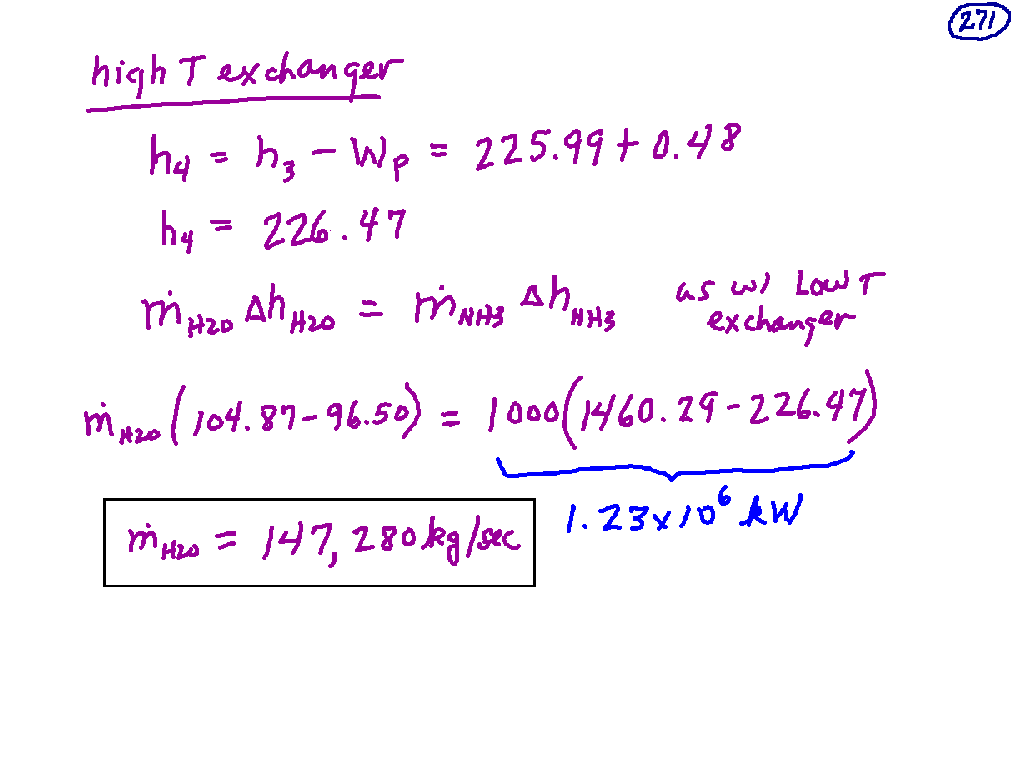 271
high T exchanger
h₄ = h₃ - Wₚ = 225.99 + 0.48
h₄ = 226.47
ṁ_H2O Δh_H2O = ṁ_NH3 Δh_NH3 as w/ Low T
exchanger
ṁ_H2O (104.87-96.50) = 1000(1460.29-226.47)
1.23x10⁶ kW
ṁ_H2O = 147,280 kg/sec